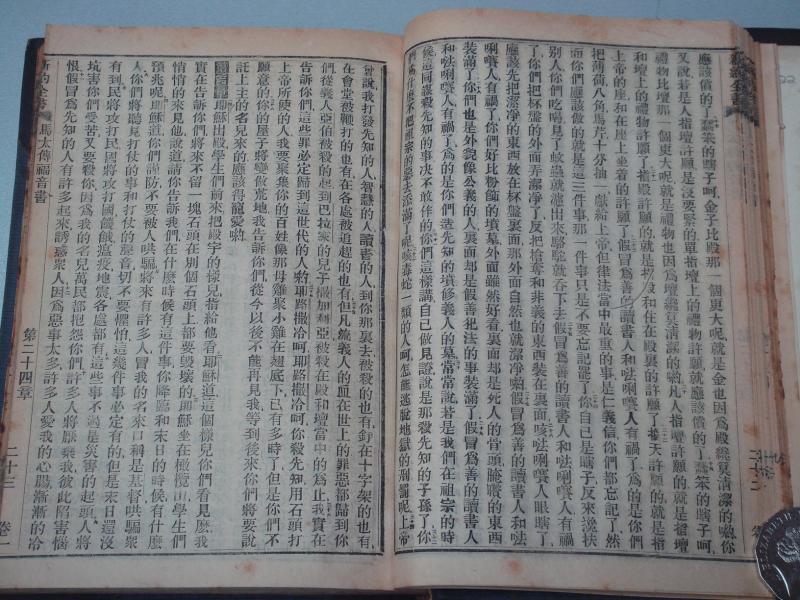 應該償的了蠢笨的瞎子呵金子比殿那一個更大呢就是金也因爲殿纔算清潔的喲你
又說若是人指壇許願是沒要緊的單指壇上禮物許願的就應該償的了蠢笨的瞎子呵
禮物比壇那一個更大呢就是禮物也因爲壇纔算清潔的喲凡人指壇許願的就是指壇
和壇上的禮物許願了指殿許願的就是指殿和住在殿裏的許願了指天許願的就是指
上帝的座和在座上坐着的許願了假冒爲善的讀書人和呿唎嚽人有禍了爲的是你們
把薄荷八角馬芹十分抽一獻給上帝但律法當中最重的事是仁義信你們都忘記了然
別人你們應該做的就是這三件事那一件事只是不要忘記罷了你自己是瞎子反來攙扶
人你們吃喝見了蚊蟲就濾出來駱駝就吞下去假冒爲善的讀書人和呿唎嚽人有禍
了你們把杯盤的外面弄潔凈了反把搶奪和非義的東西裝在裏面唉呿唎嚽人眼瞎了
應該先把潔凈的東西放在杯盤裏面那外面自然也就潔凈喲假冒爲善的讀書人和呿
唎嚽人有禍了你們好比粉飾的墳墓外面雖然好看裏面却是死人的骨頭腌臢的東西
裝滿了你們也是外貌像公義的人裏面却是假善犯法的事裝滿了假冒爲善的讀書人
和呿唎嚽人有禍了爲的是你們造先知的墳修義人的墓常常說若是我們在祖宗的時
候這同謀殺先知的事决不敢作的你們這樣講自己做見證說是那殺先知的子孫了你
們爲什麽不把祖宗的惡去添滿了呢唉毒蛇一類的人呵怎能逃脫地獄的刑罰呢上帝
曾說我打發先知的人智慧的人讀書的人到你那裏去被殺的也有釘在十字架的也有
在會堂被鞭打的也有在各處被追趕的也有但凡流義人的血在世上的罪惡都歸到你
們從義人亞伯被殺的起到巴拉家的兒子撒加利亞被殺在殿和壇當中的爲止我實在
告訴你們這些罪必定歸到這世代的人約耶路撒冷呵耶路撒冷呵你殺先知用石頭打
上帝所使的人我要聚集你的百姓像那母雞聚小雞在翅底下已有多時了但是你們不
願意的你的屋子將變做荒地我告訴你們從今以後不能再見我等到後來你們將要說
託上主的名兒來的應該得寵愛喲
耶穌出殿學生們前來把殿宇的樣兒指給他看耶穌道這個樣兒你們看見麽我
實在告訴你們將來不留一塊石頭在別個石頭上都要毀壞的耶穌坐在橄欖山學生們
悄悄的來見他說道請你告訴我們在什麽時候有這件事你降臨和末日的時候有什麽
預兆呢耶穌道你們謹防不要被人哄騙將來有許多人冒我的名來口稱是基督哄騙衆
人你們將聽見打仗的事和打仗的聲音切不要懼怕這幾件事必定有的但是末日還沒
到民將攻打民國將攻打國饑餓瘟疫地震各處都有這些事不過是災害的起頭人將
坑害你們受苦又要殺你因爲我的名兒萬民都抱怨你們許多人將厭棄我彼此陷害惱
恨假冒爲先知的人有許多起來誘惑衆人因爲惡事太多許多人愛我的心腸漸漸的冷
新約全書
馬太傳福音書
第二十四章
二十三
卷一